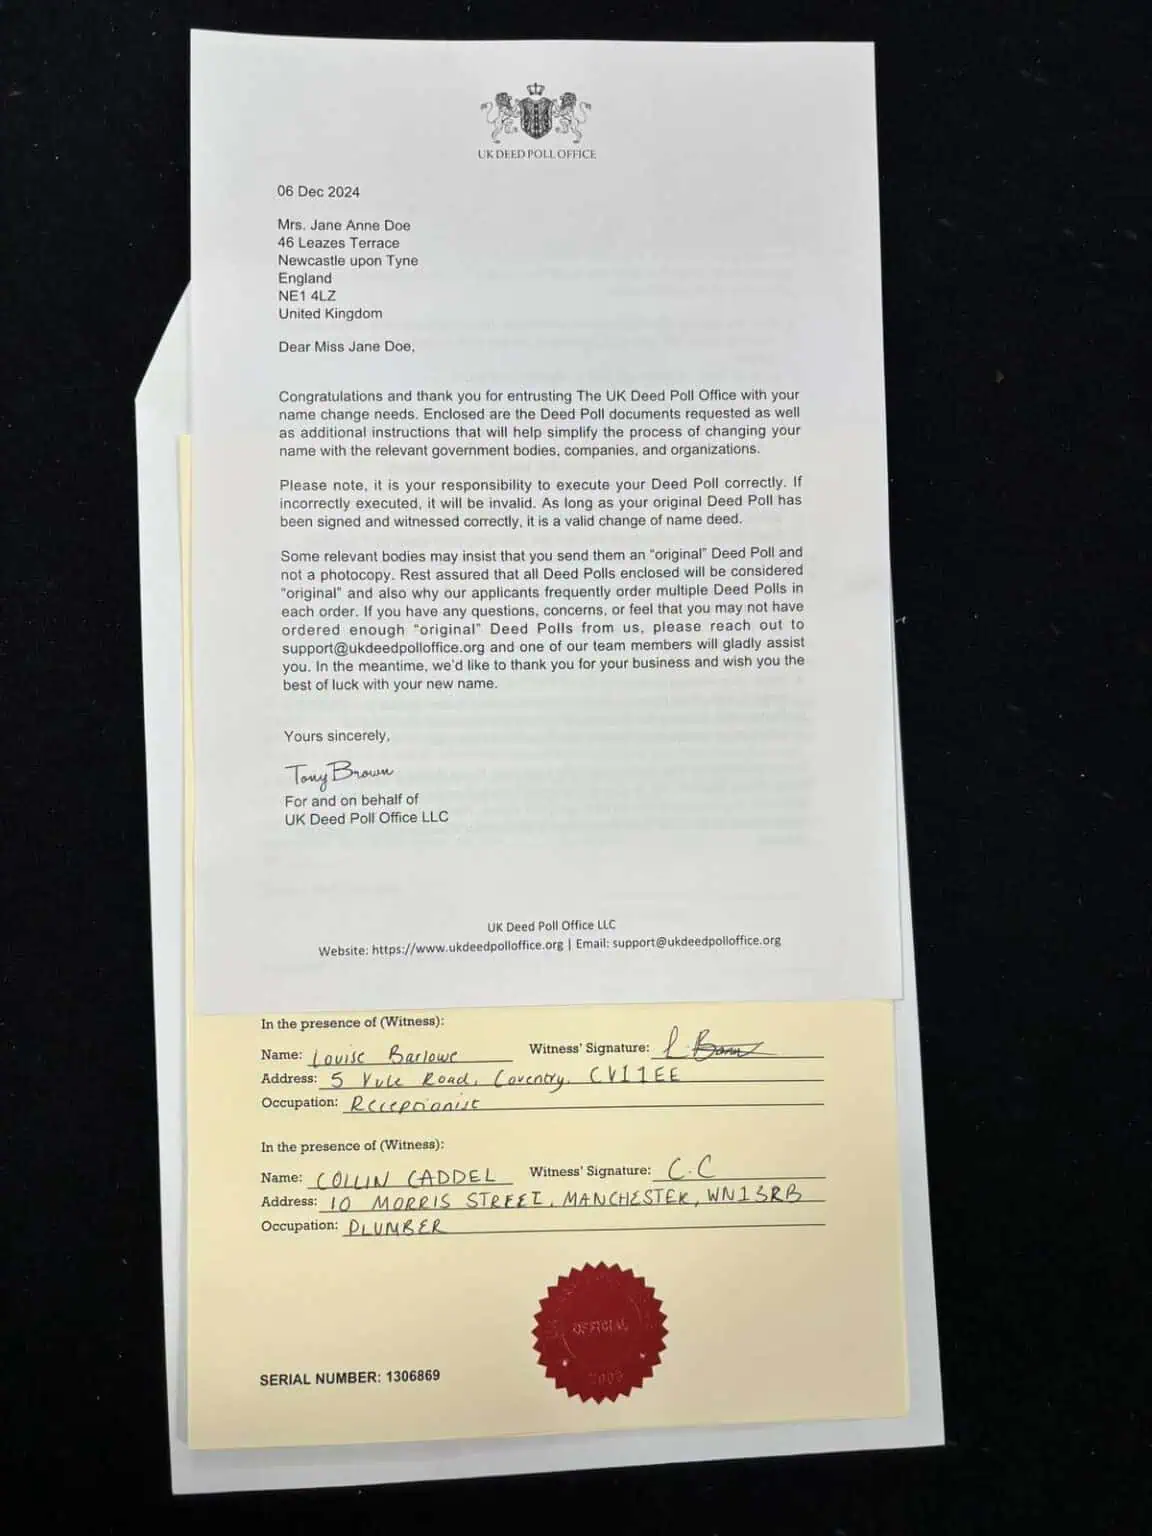 UK DEED POLL OFFICE
06 Dec 2024
Mrs. Jane Anne Doe
46 Leazes Terrace
Newcastle upon Tyne
England
NE1 4LZ
United Kingdom
Dear Miss Jane Doe,
Congratulations and thank you for entrusting The UK Deed Poll Office with your
name change needs. Enclosed are the Deed Poll documents requested as well
as additional instructions that will help simplify the process of changing your
name with the relevant government bodies, companies, and organizations.
Please note, it is your responsibility to execute your Deed Poll correctly. If
incorrectly executed, it will be invalid. As long as your original Deed Poll has
been signed and witnessed correctly, it is a valid change of name deed.
Some relevant bodies may insist that you send them an “original” Deed Poll and
not a photocopy. Rest assured that all Deed Polls enclosed will be considered
“original” and also why our applicants frequently order multiple Deed Polls in
each order. If you have any questions, concerns, or feel that you may not have
ordered enough “original” Deed Polls from us, please reach out to
support@ukdeedpolloffice.org and one of our team members will gladly assist
you. In the meantime, we’d like to thank you for your business and wish you the
best of luck with your new name.
Yours sincerely,
Tony Brown
For and on behalf of
UK Deed Poll Office LLC
UK Deed Poll Office LLC
Website: https://www.ukdeedpolloffice.org | Email: support@ukdeedpolloffice.org
In the presence of (Witness):
Name: Louise Barlowe Witness' Signature: L.
Address: 5 Road, Coventry, CV11EE
Occupation: Receptionist
In the presence of (Witness):
Name: COLLIN CADDEL Witness' Signature: C.C
Address: 10 MORRIS STREET, MANCHESTER, WN13RB
Occupation: PLUMBER
OFFICIAL
SERIAL NUMBER: 1306869